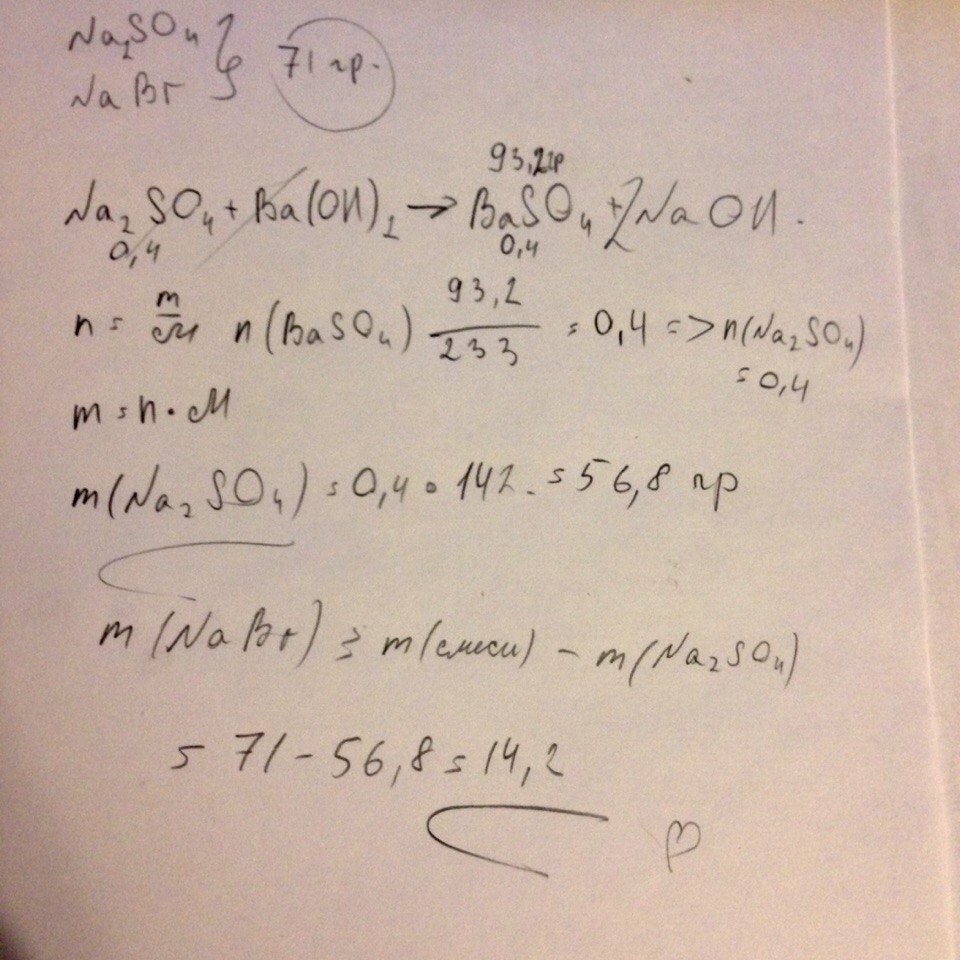 Na₂SO₄
NaBr } 71 гр.
93,2гр
Na₂SO₄ + Ba(OH)₂ → BaSO₄ + 2NaOH.
0,4 0,4
n = m/M n(BaSO₄) 93,2/233 = 0,4 => n(Na₂SO₄)
= 0,4
m = n · M
m(Na₂SO₄) = 0,4 · 142. = 56,8 гр
m(NaBr) = m(смеси) - m(Na₂SO₄)
= 71 - 56,8 = 14,2